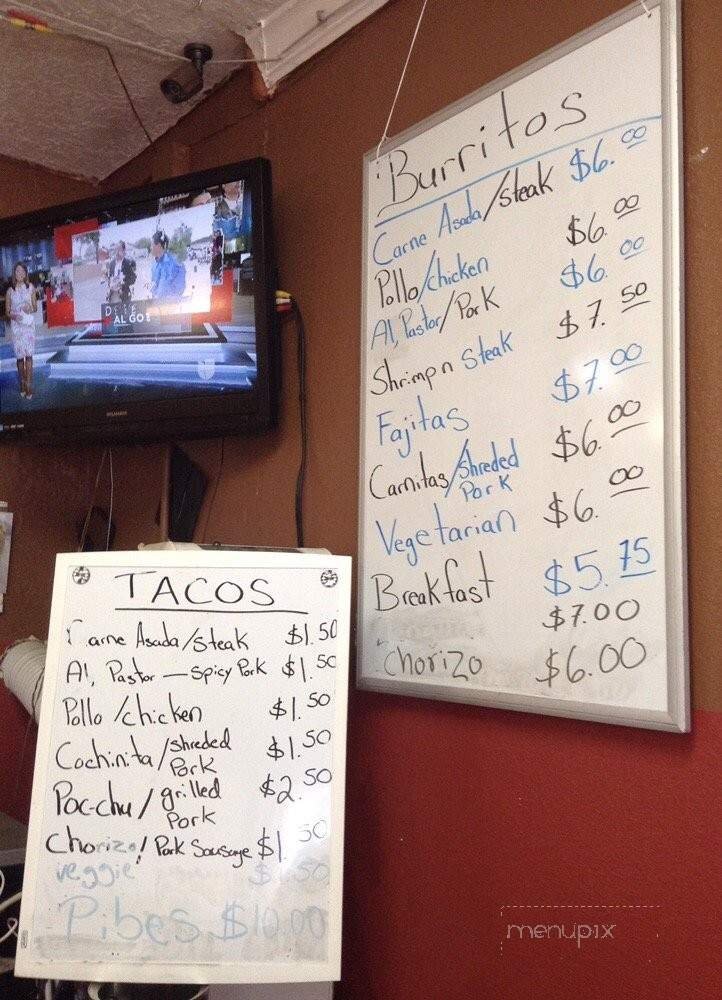 Burritos
Carne Asada/Steak $6.00
Pollo/chicken $6.00
Al, Pastor/Pork $6.00
Shrimp n Steak $7.50
Fajitas $7.00
Carnitas/Shreded Pork $6.00
Vegetarian $6.00
Breakfast $5.75
$7.00
Chorizo $6.00
TACOS
Carne Asada/Steak $1.50
Al, Pastor — Spicy Pork $1.50
Pollo/chicken $1.50
Cochinita/Shreded Pork $1.50
Poc-chu/grilled Pork $2.50
Chorizo/Pork Sausage $1.50
veggie $1.50
Pibes $10.00
ALGO
SYLVANIA
menupix